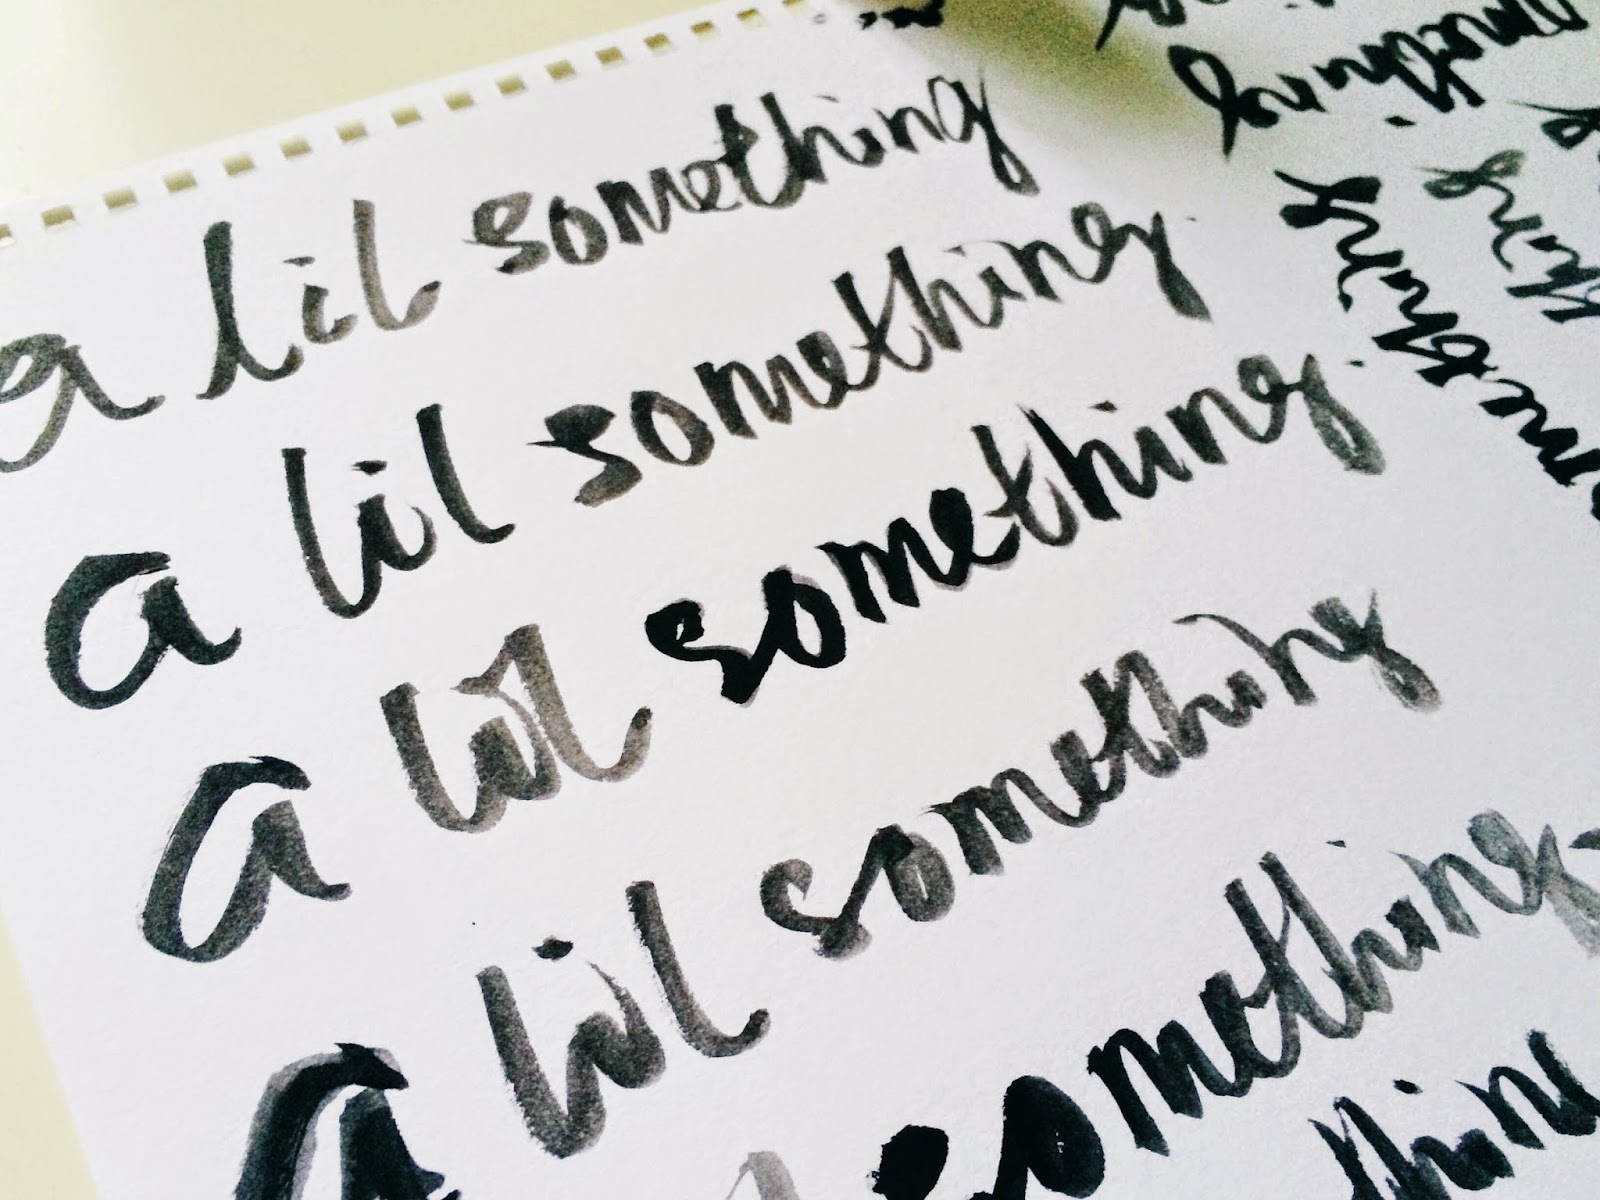 a lil something
a lil something.
a lil something.
a lil something
something.
thin
omething
thing
mething